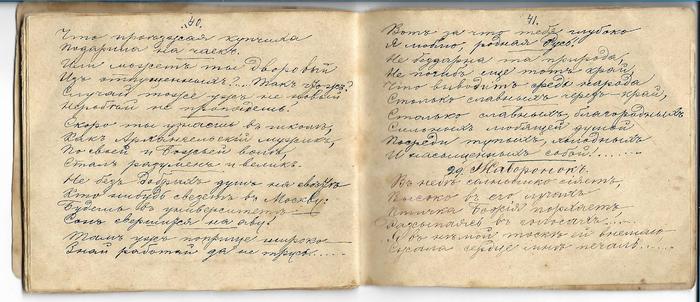 40.
Что проѣзжая купчиха
Подарила на чаекъ.
Или можетъ ты дворовый
Изъ отпущенныхъ?... Такъ что-жъ?
Случай тоже ужъ не новый
Неробѣй не пропадешь.
Скоро ты узнаешь въ школѣ,
Какъ Архангельскій мужикъ,
По своей и Божьей волѣ,
Сталъ разуменъ и великъ.
Не безъ добрыхъ душъ на свѣтѣ
Кто нибудь сведетъ въ Москву:
Будешь въ университетѣ
Сонъ свершился на яву!
Тамъ ужъ поприще широко
Знай работай да не трусь.....
41.
Вотъ за что тебя глубоко
Я люблю, родная Русь!
Не бездарна та природа,
Не погибъ еще тотъ край,
Что выводитъ средь народа
Столькъ славныхъ край,
Столько славныхъ, благородныхъ
Сильныхъ любящей душой
Посреди тупыхъ, холодныхъ
И насыщенныхъ собой!......
29. Жаворонокъ.
Въ небѣ солнышко сіяетъ,
Высоко въ его лучахъ
Птичка Божія порхаетъ
въ голосахъ....
Я въ нѣмой тоскѣ ей внемлю
сердце мнѣ печаль.....